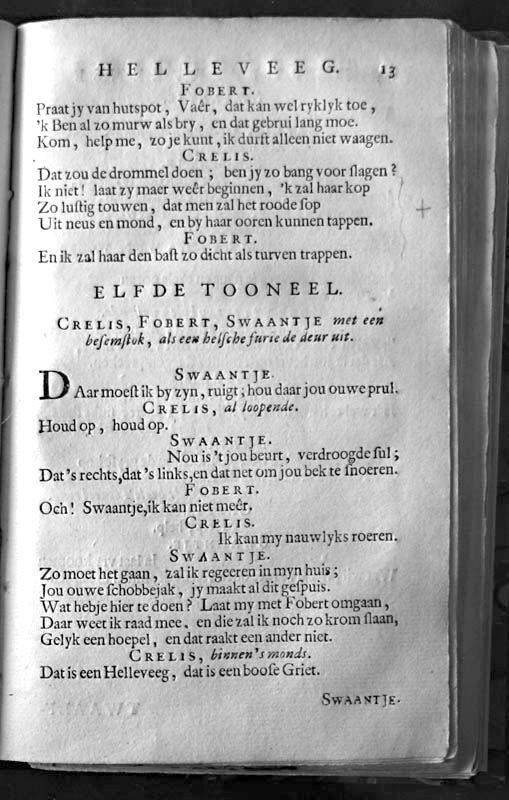 HELLEVEEG. 13
FOBERT.
Praat jy van hutspot, Vaêr, dat kan wel ryklyk toe,
'k Ben al zo murw als bry, en dat gebrui lang moe.
Kom, help me, zo je kunt, ik durſt alleen niet waagen.
CRELIS.
Dat zou de drommel doen; ben jy zo bang voor ſlagen?
Ik niet! laat zy maer weêr beginnen, 'k zal haar kop
Zo luſtig touwen, dat men zal het roode ſop
Uit neus en mond, en by haar ooren kunnen tappen.
FOBERT.
En ik zal haar den baſt zo dicht als turven trappen.
ELFDE TOONEEL.
CRELIS, FOBERT, SWAANTJE met een
beſemſtok, als een helſche furie de deur uit.
SWAANTJE.
DAar moeſt ik by zyn, ruigt; hou daar jou ouwe prul.
CRELIS, al loopende.
Houd op, houd op.
SWAANTJE.
Nou is 't jou beurt, verdroogde ſul;
Dat's rechts, dat's links, en dat net om jou bek te ſnoeren.
FOBERT.
Och! Swaantje, ik kan niet meêr.
CRELIS.
Ik kan my nauwlyks roeren.
SWAANTJE.
Zo moet het gaan, zal ik regeeren in myn huis;
Jou ouwe ſchobbejak, jy maakt al dit geſpuis.
Wat hebje hier te doen? Laat my met Fobert omgaan,
Daar weet ik raad mee, en die zal ik noch zo krom ſlaan,
Gelyk een hoepel, en dat raakt een ander niet.
CRELIS, binnen's monds.
Dat is een Helleveeg, dat is een booſe Griet.
SWAANTJE.